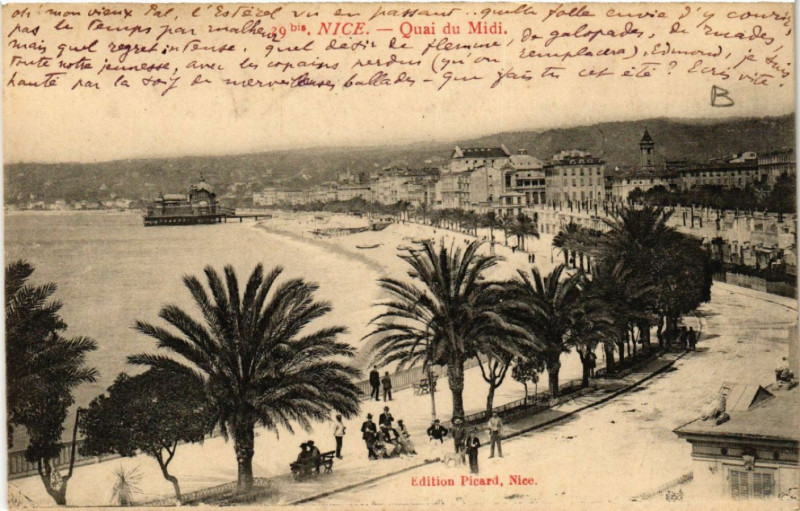 oh! mon vieux Pal, l'Estérel vu en passant - quelle folle envie d'y courir,
pas le temps par malheur.
29 bis. NICE. — Quai du Midi.
mais quel regret intense, quel désir de flemme, de galopades, de ruades,
toute notre jeunesse, avec les copains perdus (qu'on remplacera). Edmond, je suis
hanté par la soif de merveilleuses ballades - que fais tu cet été? Ecris vite.
B
Edition Picard, Nice.